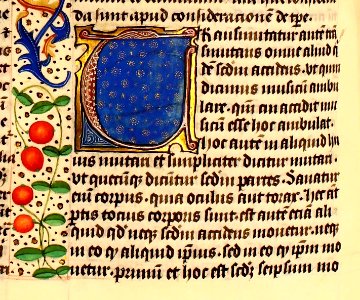 da sunt apud consideracionē de tpē.
Th ansmutatur autē trā
smutans omne aliud q
dē sedm accidēs . ut qūn
dicimus musicū ambu
lare . qm̄ an accidit mu
sicū esse hoc ambulat .
Hoc autē in aliquid hu
ius mutari et simpliciter dicitur mutari .
ut quecumqȝ dicūtur sedm partes . Sanatur
enī corpus . quia oculus aut torax . hec aūt
ptes tocius corporis sunt . est autē etiā ali
quid qd' neqȝ sedm accidens mouetur . neqȝ
in eo q aliquid ipsius . sed in eo q ipm̄ mo
uetur . primum et hoc est sedȝ seipsum mo